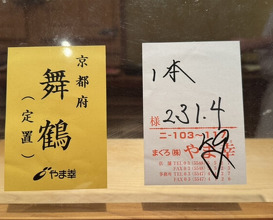 京都府
舞鶴
(定置)
やま幸
1本
様 231.4
ニ-103~
まぐろ(株) やま幸